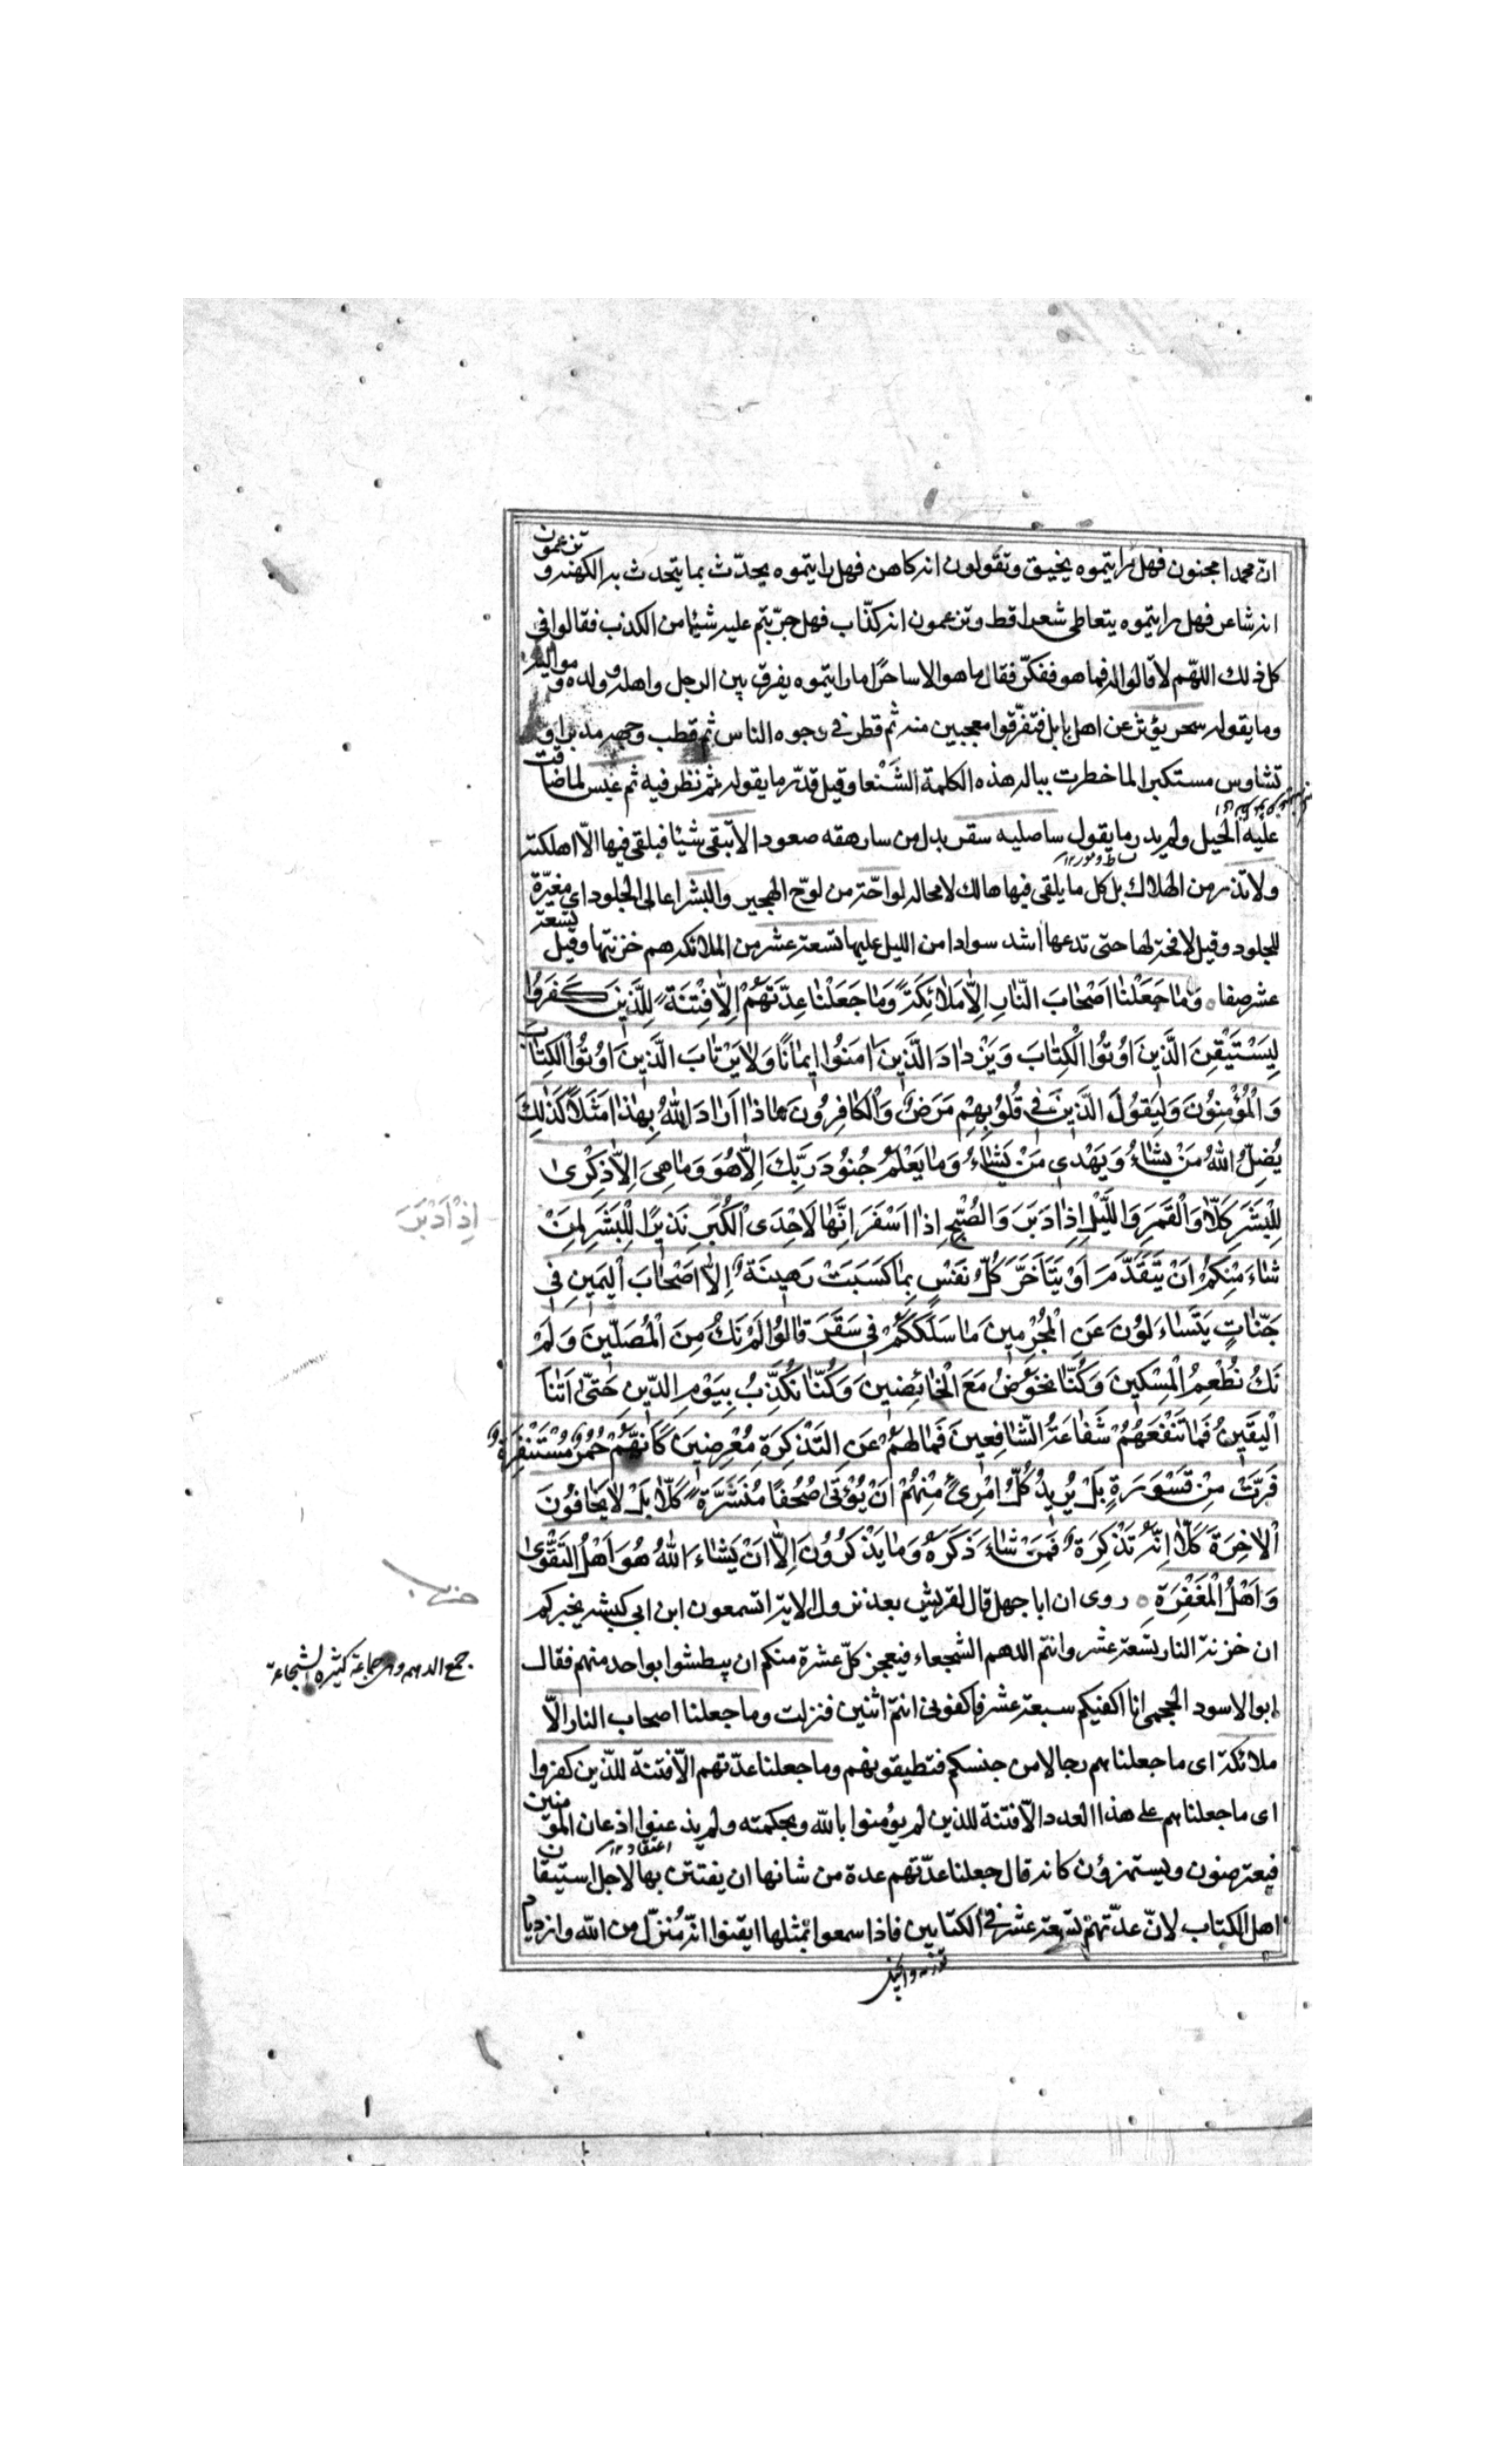 انّ محمدا مجنون فهل رايتموه يخنق وتقولون انه كاهن فهل رايتموه يحدّث بما يتحدث به الكهنه و تزعمون
انه شاعر فهل رايتموه يتعاطى شعرا قط وتزعمون انه كذّاب فهل جرّبتم عليه شيئا من الكذب فقالوا في
كل ذلك اللهّم لا قالوا له فما هو ففكّر فقال ما هو الا ساحرًا ما رايتموه يفرق بين الرجل واهله وولده و مواليه
وما يقوله سحر يؤثر عن اهل بابل فتفرّقوا معجبين منه ثم قطر في وجوه الناس ثم قطب و مدبرا و
تشاوس مستكبرا لما خطرت بباله هذه الكلمة الشَنْعا وقيل قدّر ما يقوله ثم نظر فيه ثم عبس لما ضاقت
عليْه الحيل ولم يدر ما يقول ساصليه سقر بدل من سارهقه صعودا لا تبقى شيئا فيلقى فيها الّا اهلكته
ولا تذر من الهلاك بل كل ما يلقى فيها هالك لا محاله لواحّة من لوّح الهجير والبشر اعالى الجلود اى مغيّرة
للجلود وقيل لافحة لها حتى تدعها اشد سوادا من الليل عليها تسعة عشر من الملائكه هم خزنتها وقيل تسعة
عشر صفا ۰ وَمٰا جَعَلْنٰا اَصْحٰابَ النّٰارِ اِلّٰا مَلٰائِكَةً وَمٰا جَعَلْنٰا عِدَّتَهُمْ اِلّٰا فِتْنَةً لِلَّذِينَ كَفَرُوا
لِيَسْتَيْقِنَ الَّذِينَ اُوتُوا الْكِتٰابَ وَيَزْدٰادَ الَّذِينَ اٰمَنُوا اِيمٰانًا وَلٰا يَرْتٰابَ الَّذِينَ اُوتُوا الْكِتٰابَ
وَالْمُؤْمِنُونَ وَلِيَقُولَ الَّذِينَ فِي قُلُوبِهِمْ مَرَضٌ وَالْكٰافِرُونَ مٰاذٰا اَرٰادَ اللّٰهُ بِهٰذٰا مَثَلًا كَذٰلِكَ
يُضِلُّ اللّٰهُ مَنْ يَشٰاءُ وَيَهْدِي مَنْ يَشٰاءُ وَمٰا يَعْلَمُ جُنُودَ رَبِّكَ اِلّٰا هُوَ وَمٰا هِيَ اِلّٰا ذِكْرىٰ
لِلْبَشَرِ كَلّٰا وَالْقَمَرِ وَاللَّيْلِ اِذٰا دَبَرَ وَالصُّبْحِ اِذٰا اَسْفَرَ اِنَّهٰا لَاِحْدَى الْكُبَرِ نَذِيرًا لِلْبَشَرِ لِمَنْ
اِذْ اَدْبَرَ
شٰاءَ مِنْكُمْ اَنْ يَتَقَدَّمَ اَوْ يَتَاَخَّرَ كُلُّ نَفْسٍ بِمٰا كَسَبَتْ رَهِينَةٌ اِلّٰا اَصْحٰابَ الْيَمِينِ فِي
جَنّٰاتٍ يَتَسٰاءَلُونَ عَنِ الْمُجْرِمِينَ مٰا سَلَكَكُمْ فِي سَقَرَ قٰالُوا لَمْ نَكُ مِنَ الْمُصَلِّينَ وَلَمْ
نَكُ نُطْعِمُ الْمِسْكِينَ وَكُنّٰا نَخُوضُ مَعَ الْخٰائِضِينَ وَكُنّٰا نُكَذِّبُ بِيَوْمِ الدِّينِ حَتّىٰ اَتٰانَا
الْيَقِينُ فَمٰا تَنْفَعُهُمْ شَفٰاعَةُ الشّٰافِعِينَ فَمٰا لَهُمْ عَنِ التَّذْكِرَةِ مُعْرِضِينَ كَاَنَّهُمْ حُمُرٌ مُسْتَنْفِرَةٌ
فَرَّتْ مِنْ قَسْوَرَةٍ بَلْ يُرِيدُ كُلُّ امْرِئٍ مِنْهُمْ اَنْ يُؤْتىٰ صُحُفًا مُنَشَّرَةً كَلّٰا بَلْ لٰا يَخٰافُونَ
الْاٰخِرَةَ كَلّٰا اِنَّهُ تَذْكِرَةٌ فَمَنْ شٰاءَ ذَكَرَهُ وَمٰا يَذْكُرُونَ اِلّٰا اَنْ يَشٰاءَ اللّٰهُ هُوَ اَهْلُ التَّقْوىٰ
وَاَهْلُ الْمَغْفِرَةِ ۰ روى ان ابا جهل قال لقريش بعد نزول الاية اتسمعون ابن ابى كبشه يخبركم
ان خزنة النار تسعة عشر وانتم الدهم الشجعاء فيعجز كلّ عشرة منكم ان يبطشوا بواحد منهم فقال
جمع الدهم وهى جماعة كثيرة الشجاعة
ابو الاسود الجحمى انا اكفيكم سبعة عشر فاكفونى انتم اثنين فنزلت وما جعلنا اصحاب النار الّا
ملائكة اى ما جعلناهم رجالا من جنسكم فتطيقونهم وما جعلنا عدّتهم الّا فتنة للّذين كفروا
اى ما جعلناهم على هذا العدد الّا فتنة للذين لم يؤمنوا بالله وبحكمته ولم يذعنوا اذعان المؤمنين
فيعترضون ويستهزؤن كانه قال جعلنا عدّتهم عدة من شانها ان يفتتن بها لاجل استيقان
اهل الكتاب لانّ عدّتهم تسعة عشر في الكتابين فاذا سمعوا بمثلها ايقنوا انّه مُنزّل من الله وازدياد